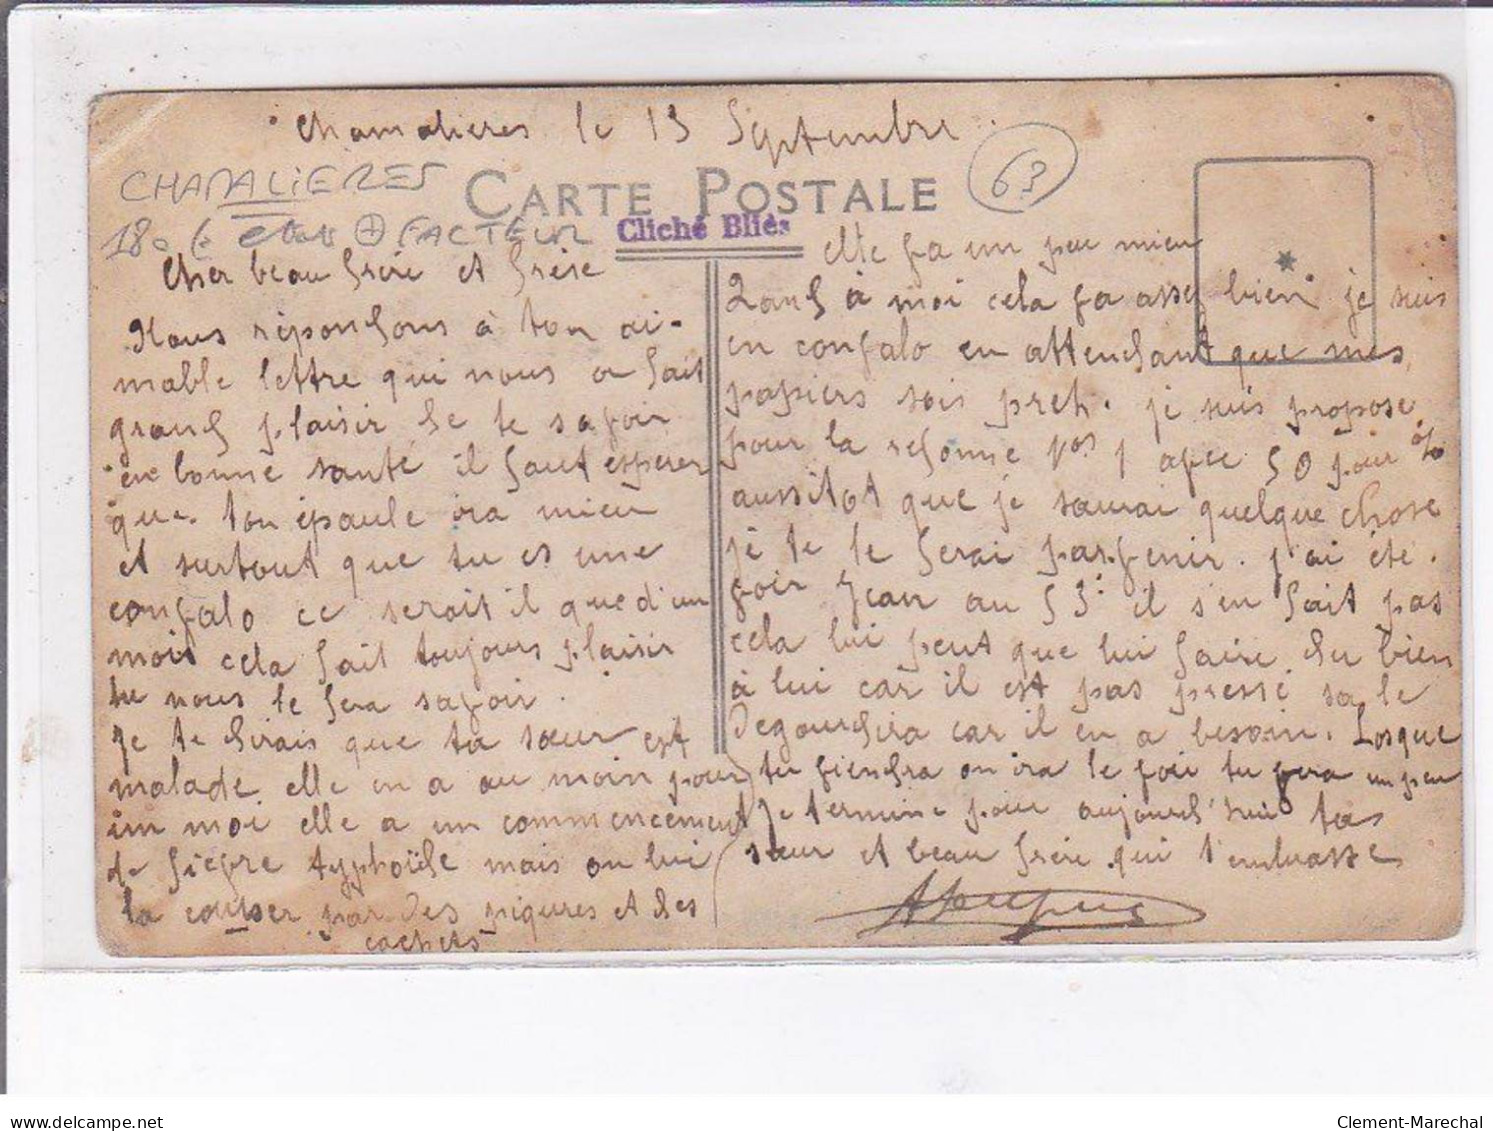 Chamalieres le 13 Septembre
CHAMALIERES
CARTE POSTALE
63
180 € FACTEUR
Cliché Bliès
Cher beau frère et frère
Nous répondons à ton ai-
mable lettre qui nous a fait
grand plaisir de te savoir
en bonne santé il faut esperer
que ton épaule ira mieu
et surtout que tu es une
convalo ce serait il que d'un
mois cela fait toujours plaisir
tu nous le fera savoir.
Je te dirais que ta sœur est
malade elle en a au moin pour
un moi elle a un commencement
de fievre typhoïde mais on lui
la couper par des piqures et des
cachets
elle va un peu mieu
Quand à moi cela va assez bien je suis
en convalo en attendant que mes
papiers sois pret. je suis propose
pour la reforme Nº 1 avec 50 pour %
aussitot que je saurai quelque chose
je te le ferai parvenir. j'ai été
voir Jean au 53. il s'en fait pas
cela lui peut que lui faire du bien
à lui car il est pas pressé sa le
degourdira car il en a besoin. Losque
tu viendra on ira le voir tu vera un peu
Je termine pour aujourd'hui tas
sœur et beau frère qui t'embrasse